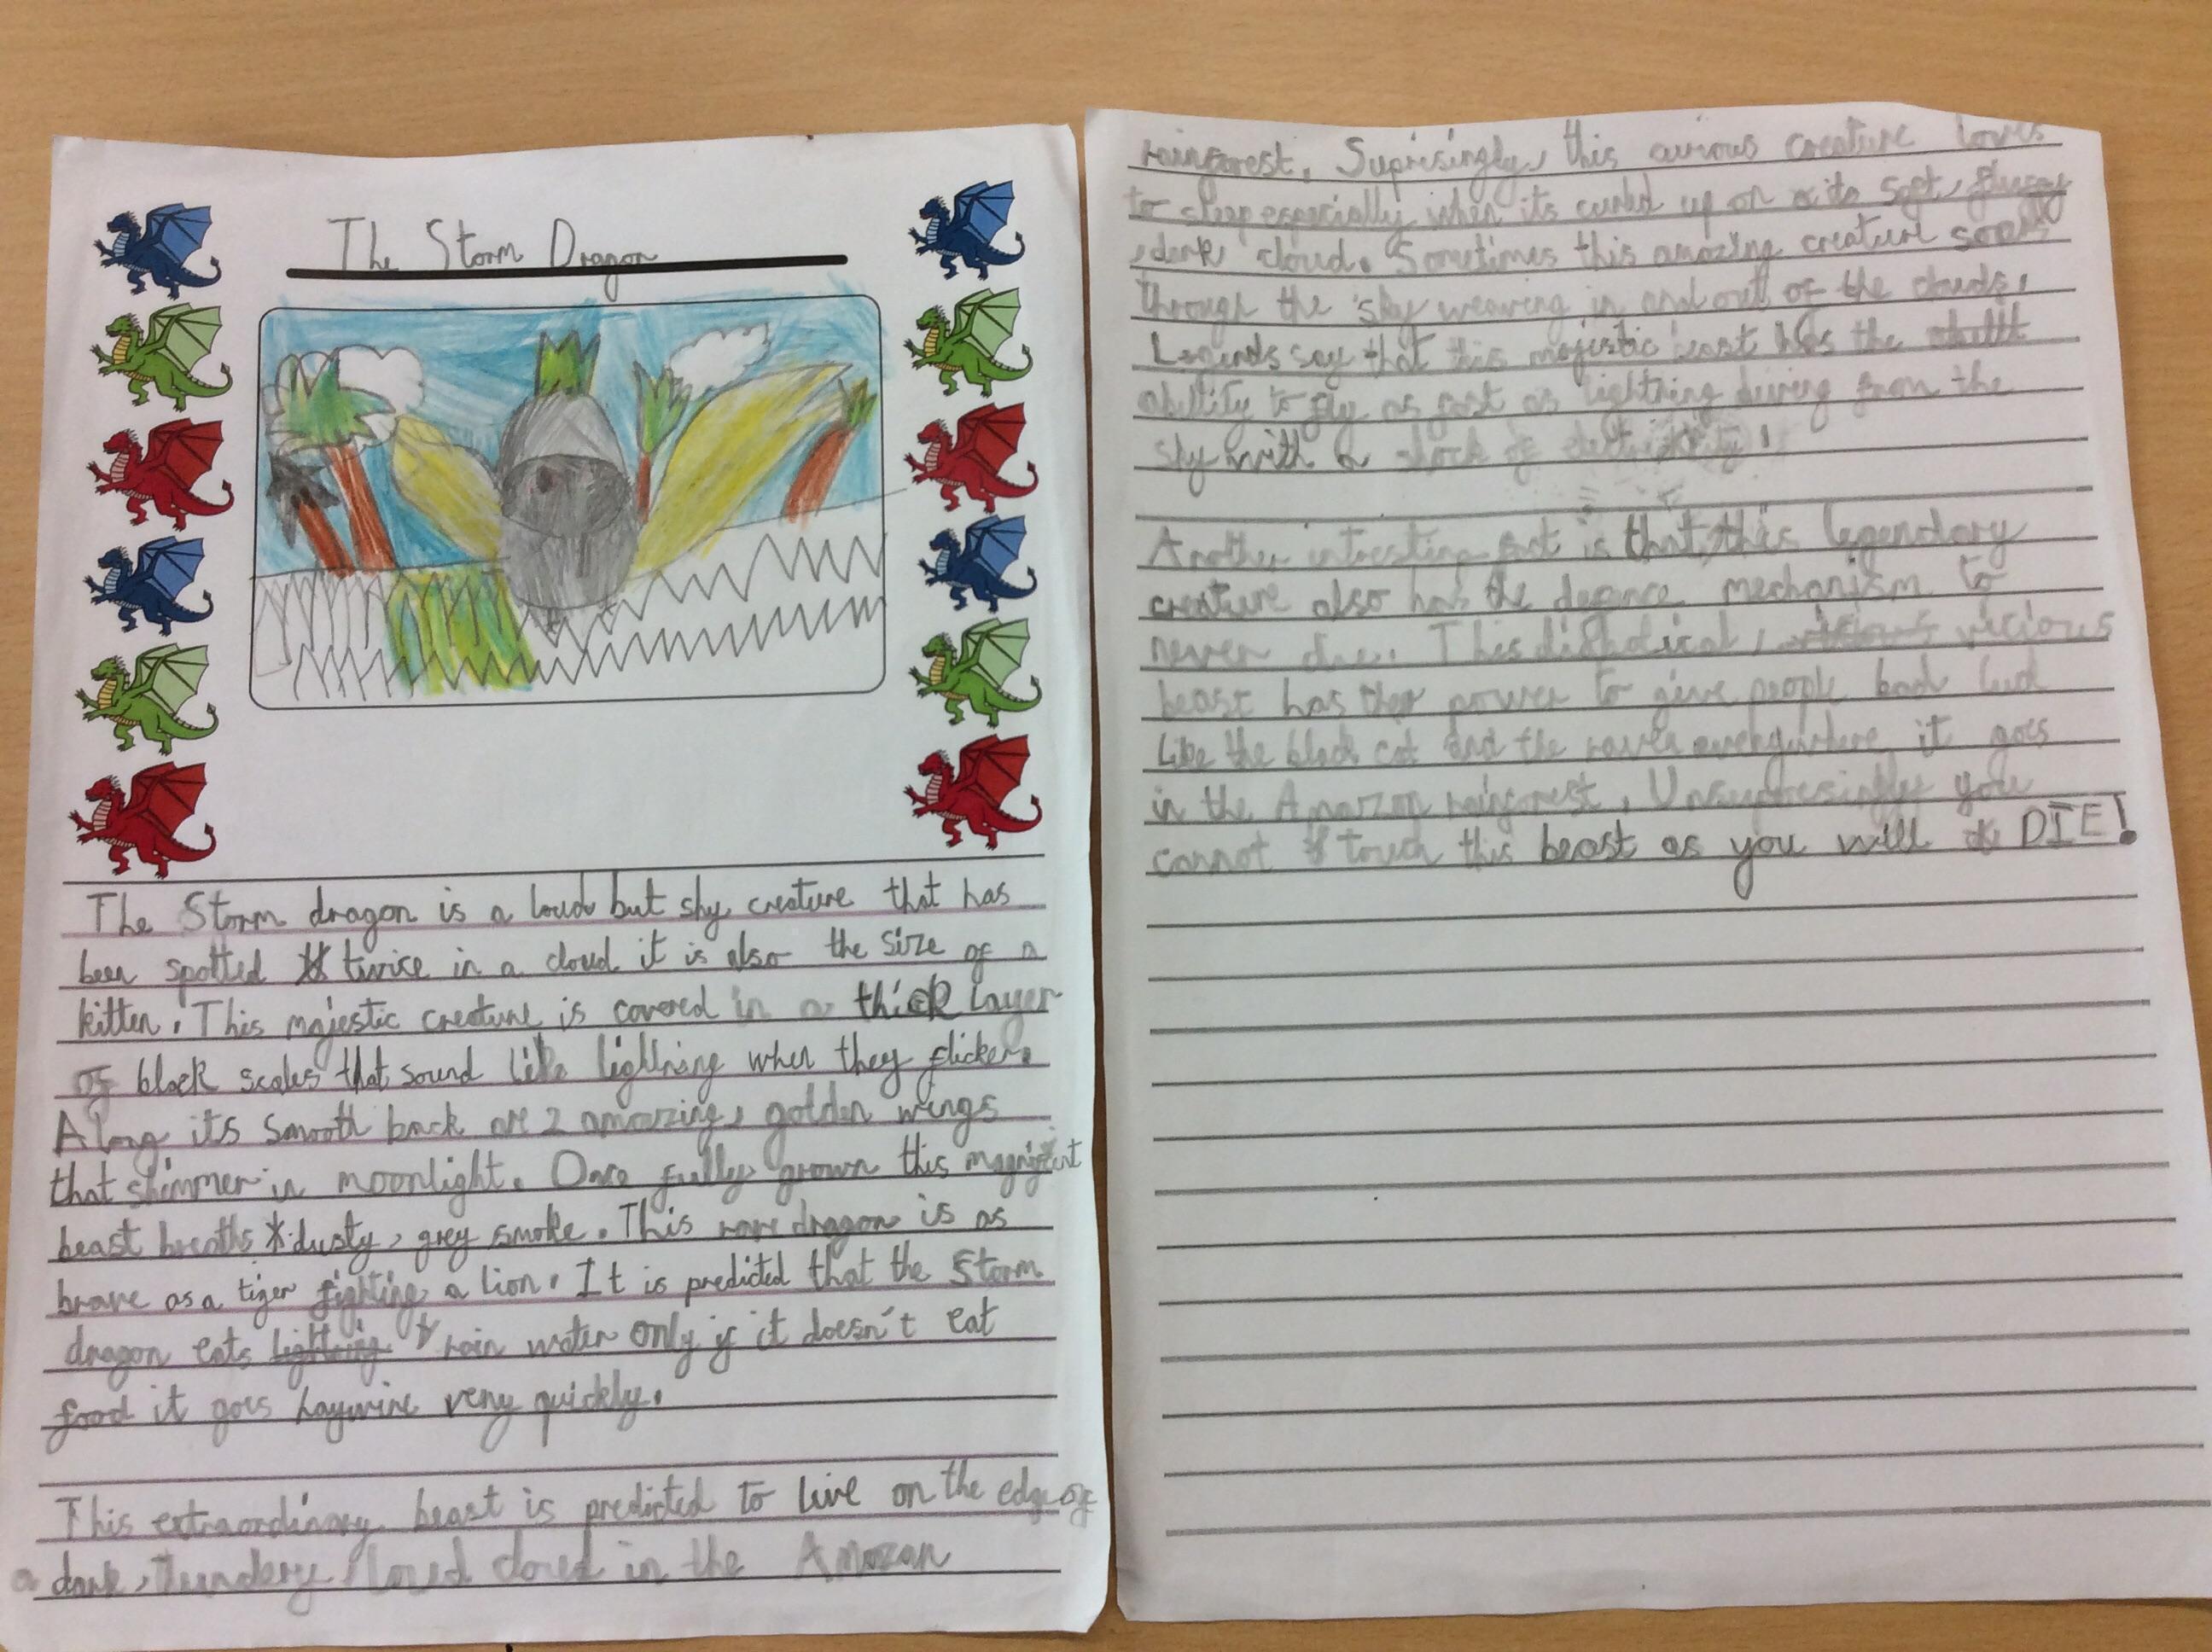 The Storm Dragon
The Storm dragon is a loud but shy creature that has
been spotted twice in a cloud it is also the size of a
kitten. This majestic creature is covered in a thick layer
of black scales that sound like lightning when they flicker.
Along its smooth back are 2 amazing, golden wings
that shimmer in moonlight. Once fully grown this
beast breaths dusty, grey smoke. This rare dragon is as
brave as a tiger fighting a lion. It is predicted that the Storm
dragon eats rain water only if it doesn't eat
food it goes haywire very quickly.
This extraordinary beast is predicted to live on the edge of
a dark, thundery, loud cloud in the Amazon
rainforest. Suprisingly, this curious creature loves
to sleep especially when its curled up on its soft,
, dark cloud. Sometimes this amazing creature soars
through the sky weaving in and out of the clouds.
Legends say that this majestic beast has the
abillity to fly as fast as lightning diving from the
sky with a shock of
Another intresting fact is that, this legendary
creature also has the defence mechanism to
never die. This vicious
beast has the power to give people bad luck
like the black cat and the raven everywhere it goes
in the Amazon rainforest. Unsuprisingly you
cannot touch this beast as you will DIE!